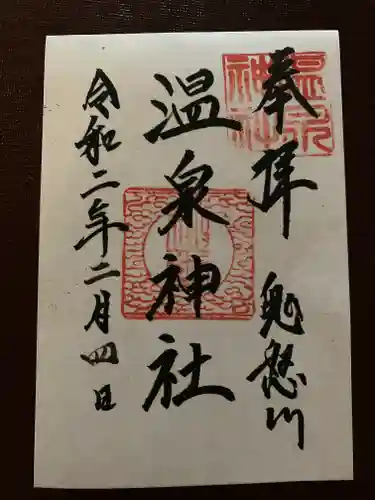 奉拝
鬼怒川
温泉神社
令和二年二月四日
温泉
神社